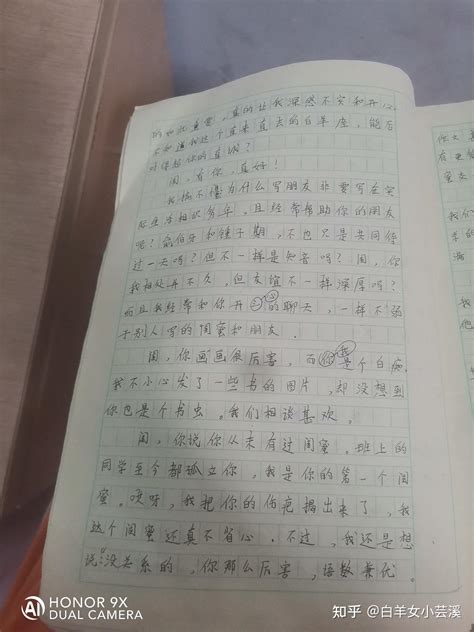 的如此真_，真的让我深然不安和开心，
不知道我这个直来直去的白羊座，能否
对得起你的真诚？
闺，有你，真好！
我搞不懂为什么写朋友非要写在实
际_方相识多年，且经常帮助你的朋友
呢？俞伯牙和锺子期，不也只是共同待
过一天吗？但不一样是知音吗？闺，你
我相处并不久，但友谊不一样深厚吗？
而且我经常和你开心的聊天，一样不弱
于别人写的闺蜜和朋友．
闺，你画画很厉害，而我是个白痴．
我不小心发了一些书的图片，却没想到
你也是个书虫．我们相谈甚欢．
闺，你说你从未有过闺蜜．班上的
同学至今都孤立你，我是你的第一个闺
蜜．哎呀，我把你的伤疤揭出来了，我
这个闺蜜还真不省心．不过，我还是想
说：“没关系的，你那么厉害，语数兼优．
HONOR 9X
DUAL CAMERA
知乎 @白羊女小芸溪